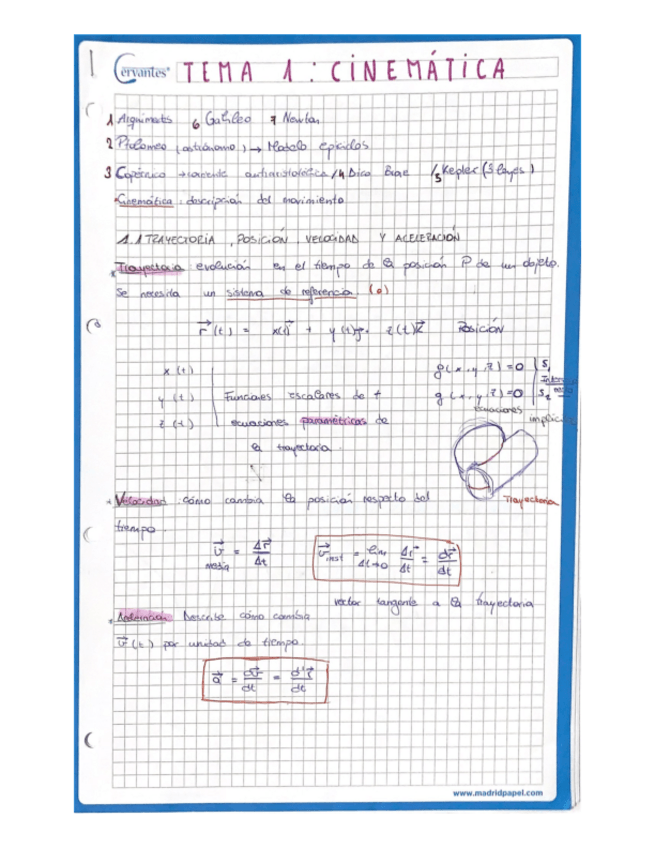 Cervantes® TEMA 1 : CINEMÁTICA
1 Arquímedes 6 Galileo 7 Newton
2 Ptolomeo (astrónomo) → Modelo epiciclos
3 Copérnico → corriente antiaristotélica /4 Dico Brae /5 Kepler (3 leyes)
Cinemática : descripción del movimiento
1.1 TRAYECTORIA, POSICIÓN, VELOCIDAD Y ACELERACIÓN
Trayectoria evolución en el tiempo de la posición P de un objeto.
Se necesita un sistema de referencia. (o)
r⃗(t) = x(t)i⃗ + y(t)j⃗ + z(t)k⃗ Posición
x(t)
y(t) Funciones escalares de t
z(t) ecuaciones paramétricas de
la trayectoria.
f(x,y,z)=0 S₁
g(x,y,z)=0 S₂
ecuaciones
Trayectoria
Velocidad : cómo cambia la posición respecto del
tiempo.
v⃗ media = Δr⃗/Δt v⃗ inst = lim Δt→0 Δr⃗/Δt = dr⃗/dt
vector tangente a la trayectoria
Aceleración Describe cómo cambia
v⃗(t) por unidad de tiempo.
a⃗ = dv⃗/dt = d²r⃗/dt
www.madridpapel.com